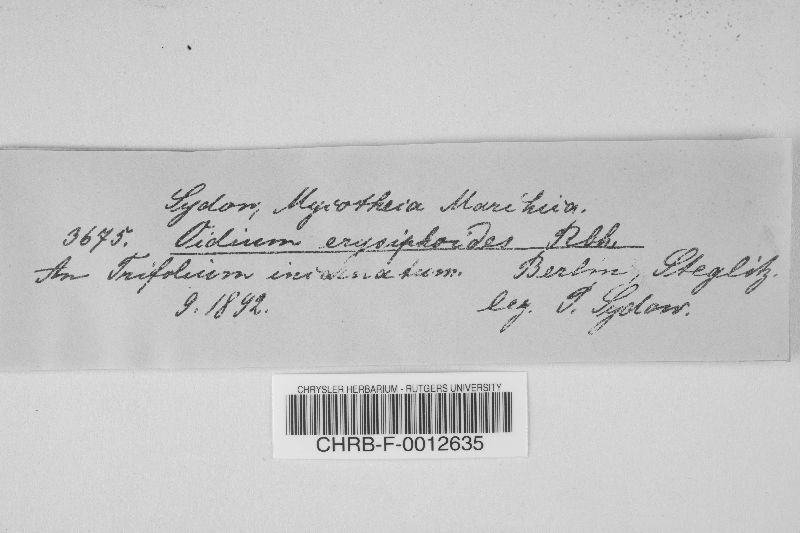 Sydow, Mycotheca Marchica.
3675. Oidium erysiphoides Rbh
An Trifolium incarnatum. Berlin, Steglitz.
9.1892. leg. P. Sydow.
CHRYSLER HERBARIUM - RUTGERS UNIVERSITY
CHRB-F-0012635